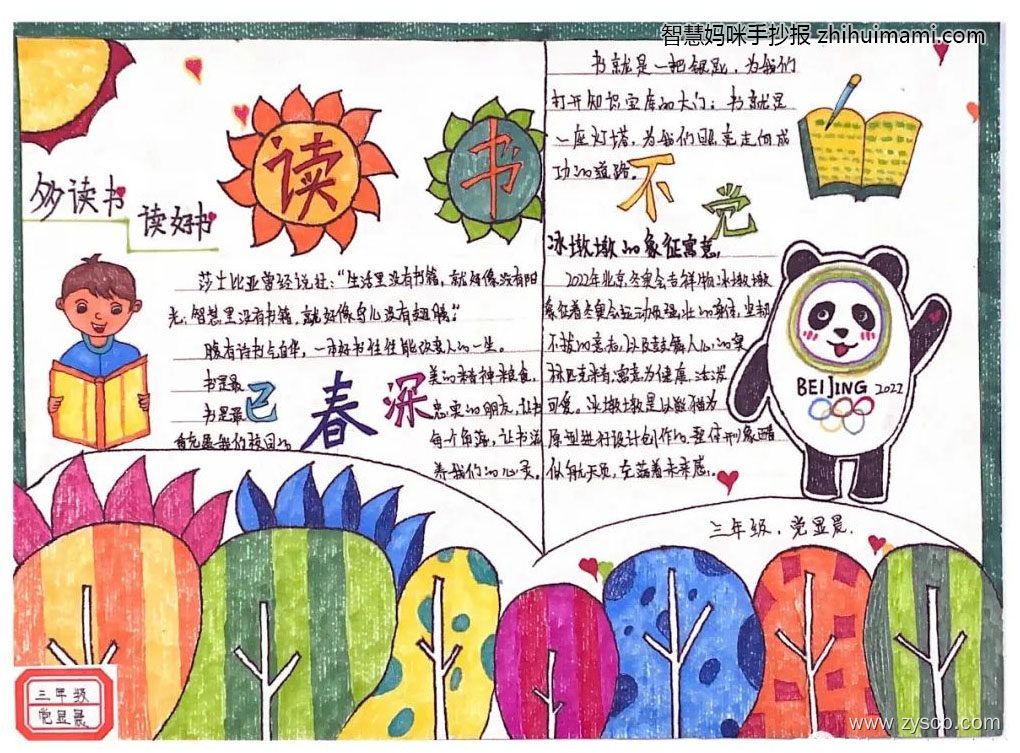 智慧妈咪手抄报 zhihuimami.com
多读书
读好书
读书
不觉
已春深
书就是一把钥匙，为我们
打开知识宝库的大门；书就是
一座灯塔，为我们照亮走向成
功的道路。
莎士比亚曾经说过：“生活里没有书籍，就好像没有阳
光；智慧里没有书籍，就好像鸟儿没有翅膀。”
腹有诗书气自华，一本好书往往能改变人的一生。
书是最
美的精神粮食，
书是最
忠实的朋友，让书
香充满我们校园的
每个角落，让书滋
养我们的心灵。
冰墩墩的象征寓意
2022年北京冬奥会吉祥物冰墩墩
象征着冬奥会运动员强壮的身体，坚韧
不拔的意志，以及鼓舞人心的奥
林匹克精神，寓意为健康，活泼
可爱。冰墩墩是以熊猫为
原型进行设计创作的，整体形象酷
似航天员，充满着未来感。
BEIJING 2022
三年级，党显晨
三年级
党显晨
www.zysco.com